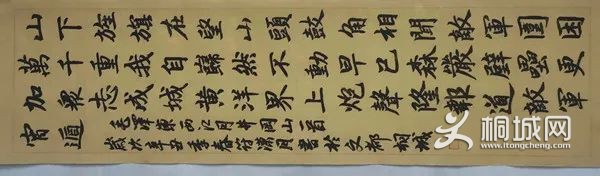 山下旌旗在望山頭鼓角相聞敵軍圍困
萬千重我自歸然不動早已森嚴壁壘更
加眾志成城黃洋界上炮聲隆報道敵軍
宵遁
毛澤東西江月井岡山一首
歲次辛丑季春月書於文都桐城
桐城网
www.itongcheng.com